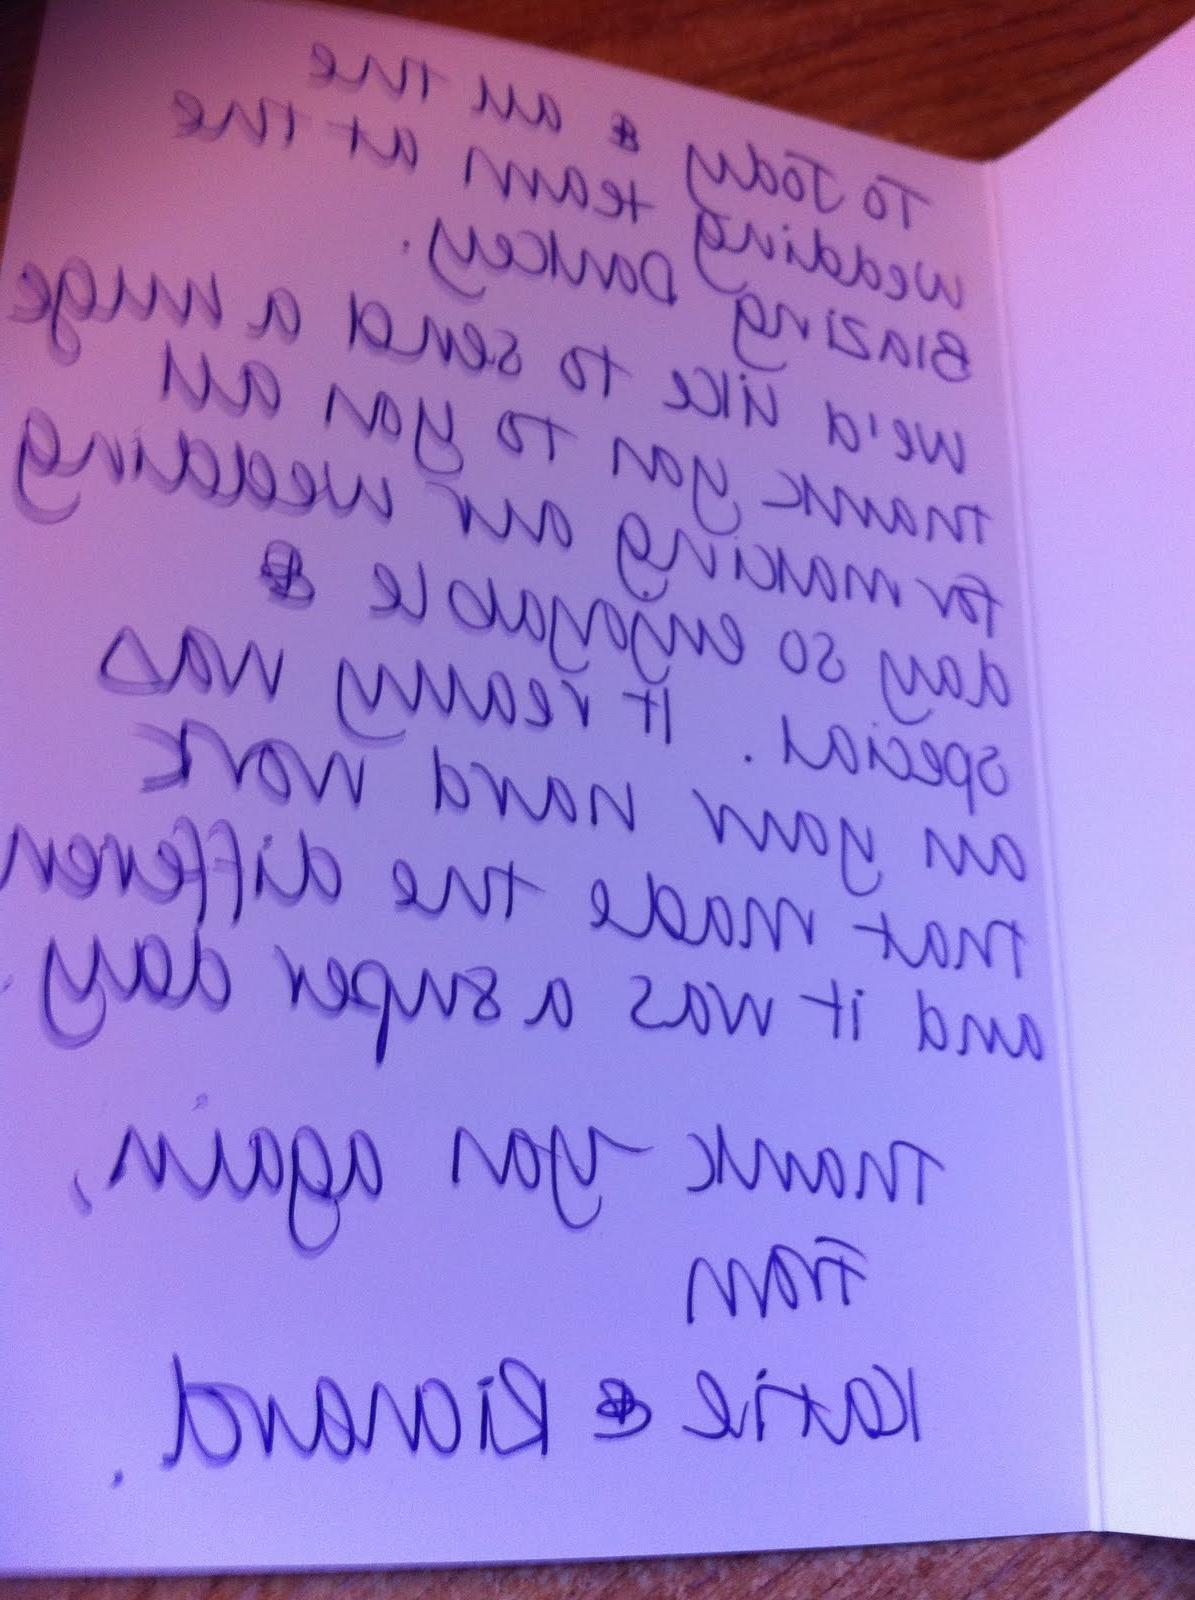 To Jody & all the
wedding team at the
Blazing Donkey.
We'd like to send a huge
thank you to you all
for making our wedding
day so enjoyable &
special. It really was
all your hard work
that made the differen
and it was a super day.
Thank you again,
From
Katie & Richard.